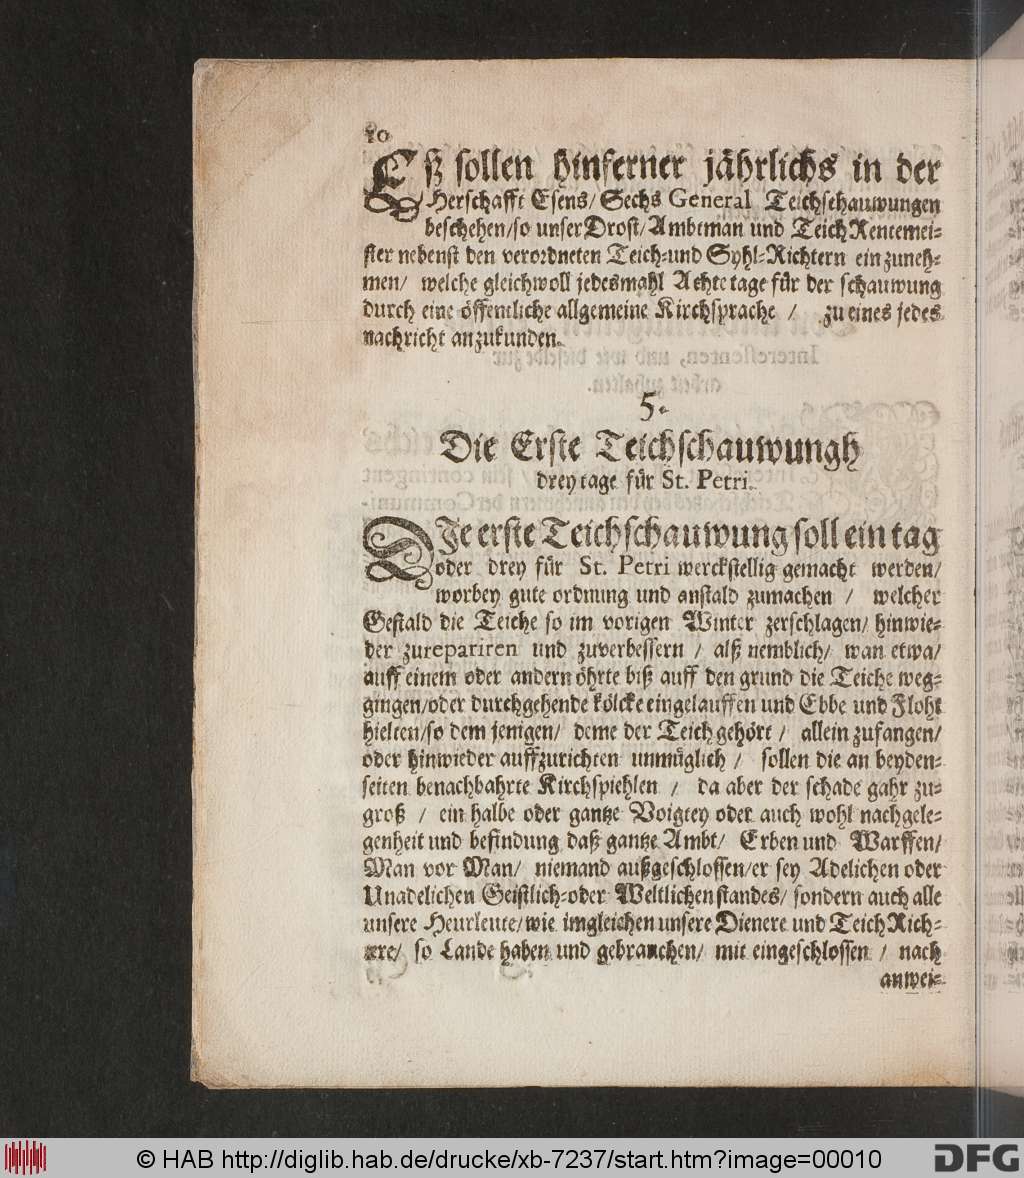 10
ESz sollen hinferner jährlichs in der
Herschafft Esens/ Sechs General Teichschauwungen
beschehen/so unser Drost/ Ambtman und Teich Rentemei=
ster nebenst den verordneten Teich=und Syhl=Richtern einzuneh=
men/ welche gleichwoll jedesmahl Achte tage für der schauwung
durch eine öffentliche allgemeine Kirchsprache / zu eines jedes
nachricht anzukunden.
5.
Die Erste Teichschauwungh
drey tage für St. Petri.
DJe erste Teichschauwung soll ein tag
oder drey für St. Petri werckstellig gemacht werden/
worbey gute ordnung und anstald zumachen / welcher
Gestald die Teiche so im vorigen Winter zerschlagen/ hinwie=
der zurepariren und zuverbessern / alß nemblich/ wan etwa/
auff einem oder andern öhrte biß auff den grund die Teiche weg=
gingen/oder durchgehende kölcke eingelauffen und Ebbe und Floht
hielten/so dem jenigen/ deme der Teich gehört / allein zufangen/
oder hinwieder auffzurichten unmüglich / sollen die an beyden=
seiten benachbahrte Kirchspiehlen / da aber der schade gahr zu=
groß / ein halbe oder gantze Voigtey oder auch wohl nachgele=
genheit und befindung daß gantze Ambt/ Erben und Warffen/
Man vor Man/ niemand außgeschlossen/er sey Adelichen oder
Unadelichen Geistlich=oder Weltlichen standes/ sondern auch alle
unsere Heurleute/wie imgleichen unsere Dienere und Teich Rich=
tere/ so Lande haben und gebrauchen/ mit eingeschlossen / nach
anwei=
© HAB http://diglib.hab.de/drucke/xb-7237/start.htm?image=00010
DFG